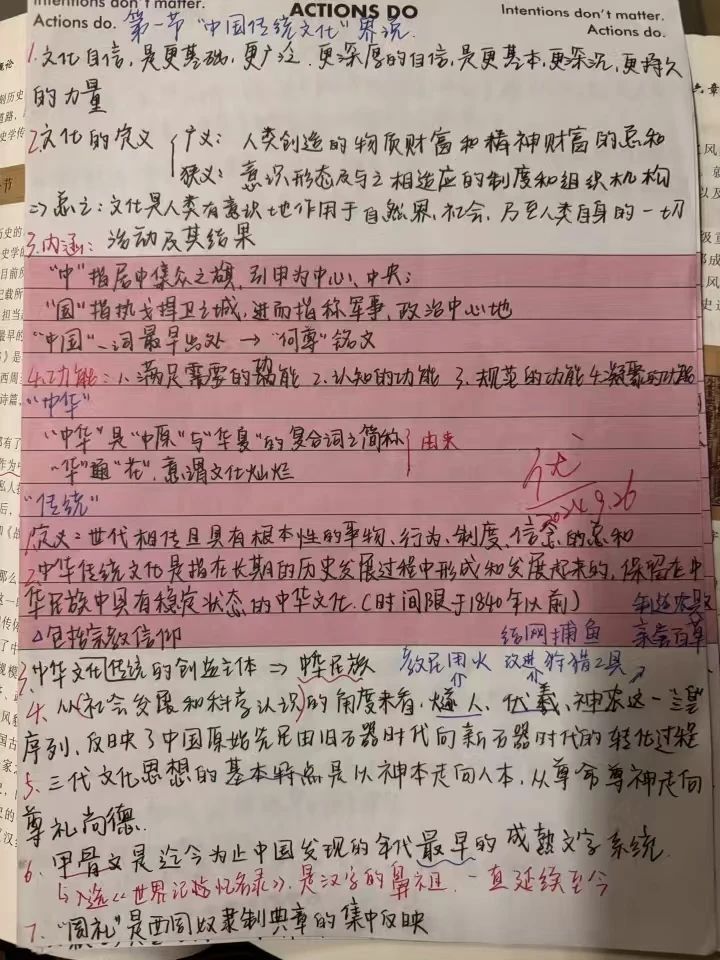 Intentions don't matter.
Actions do.
ACTIONS DO
Intentions don't matter.
Actions do.
第一节 "中国传统文化" 界说
1. 文化自信,是更基础,更广泛,更深厚的自信,是更基本,更深沉,更持久
的力量
2. 文化的定义 广义: 人类创造的物质财富和精神财富的总和
狭义: 意识形态及与之相适应的制度和组织机构
=> 总之: 文化是人类有意识地作用于自然界、社会、乃至人类自身的一切
3. 内涵: 活动及其结果
"中"指居中集众之旗,引申为中心、中央;
"国"指执戈捍卫之城,进而指称军事、政治中心地
"中国"一词最早出处 → "何尊"铭文
4. 功能: 1. 满足需要的功能 2. 认知的功能 3. 规范的功能 4. 凝聚的功能
"中华"
"中华"是"中原"与"华夏"的复合词之简称
由来
"华"通"花",意谓文化灿烂
"传统"
2024.9.26
1. 定义: 世代相传且具有根本性的事物、行为、制度、信念的总和
2. 中华传统文化是指在长期的历史发展过程中形成和发展起来的,保留在中
华民族中具有稳定状态的中华文化.(时间限于1840年以前)
△包括宗教信仰 结网捕鱼 亲尝百草
3. 中华文化传统的创造主体 => 中华民族 教民用火 改进狩猎工具
4. 从(社会发展和科学认识)的角度来看,燧人、伏羲、神农这一三皇
序列,反映了中国原始先民由旧石器时代向新石器时代的转化过程
5. 三代文化思想的基本特点是从神本走向人本,从尊命尊神走向
尊礼尚德.
6. 甲骨文是迄今为止中国发现的年代最早的成熟文字系统.
↳入选《世界记忆名录》,是汉字的鼻祖,一直延续至今
7. "周礼"是西周奴隶制典章的集中反映